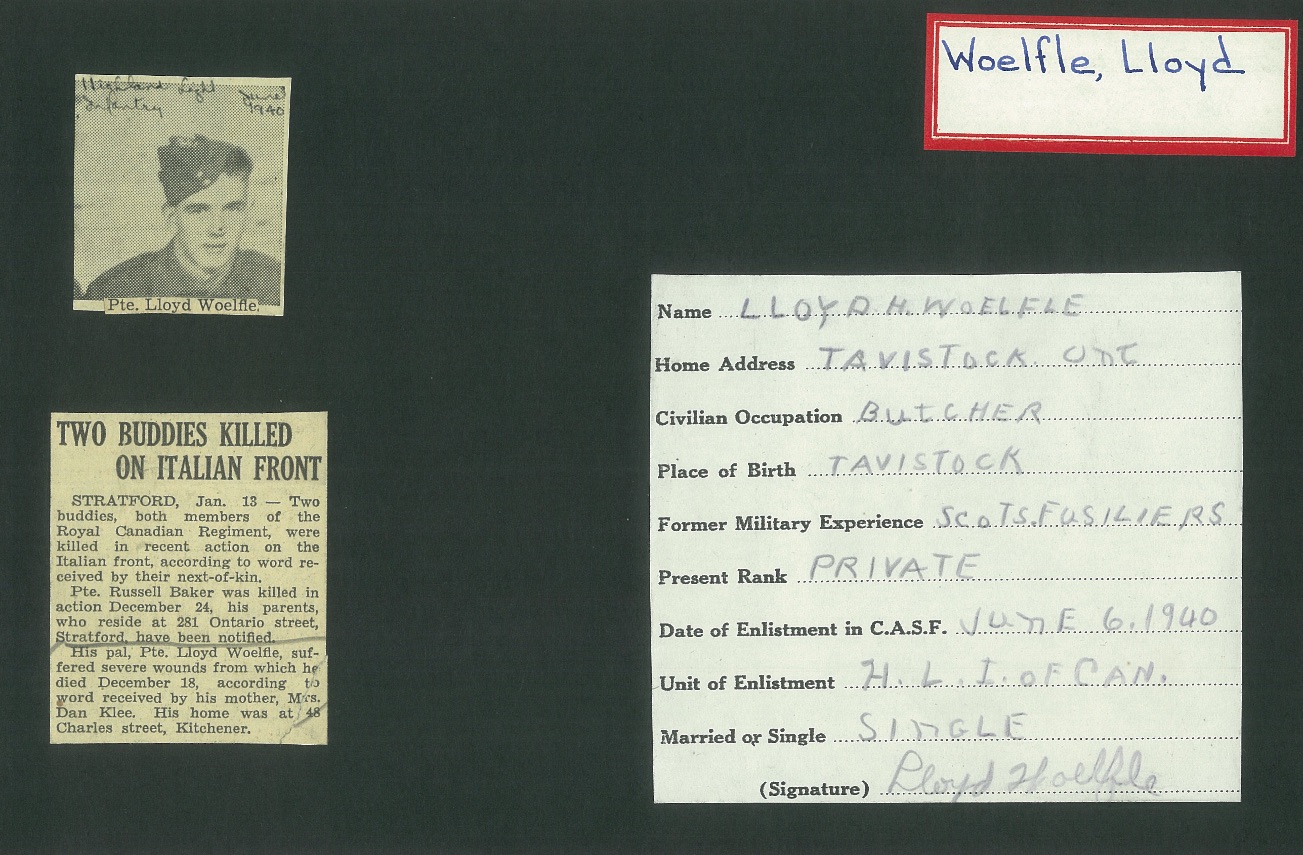 Woelfle, Lloyd
Highland Light
Infantry
June
1940
Pte. Lloyd Woelfle.
TWO BUDDIES KILLED
ON ITALIAN FRONT
STRATFORD, Jan. 13 — Two
buddies, both members of the
Royal Canadian Regiment, were
killed in recent action on the
Italian front, according to word re-
ceived by their next-of-kin.
Pte. Russell Baker was killed in
action December 24, his parents,
who reside at 281 Ontario street,
Stratford, have been notified.
His pal, Pte. Lloyd Woelfle, suf-
fered severe wounds from which he
died December 18, according to
word received by his mother, Mrs.
Dan Klee. His home was at 48
Charles street, Kitchener.
Name LLOYD H. WOELFLE
Home Address TAVISTOCK ONT
Civilian Occupation BUTCHER
Place of Birth TAVISTOCK
Former Military Experience SCOTS. FUSILIERS
Present Rank PRIVATE
Date of Enlistment in C.A.S.F. JUNE 6. 1940
Unit of Enlistment H. L. I. OF CAN.
Married or Single SINGLE
(Signature) Lloyd Woelfle